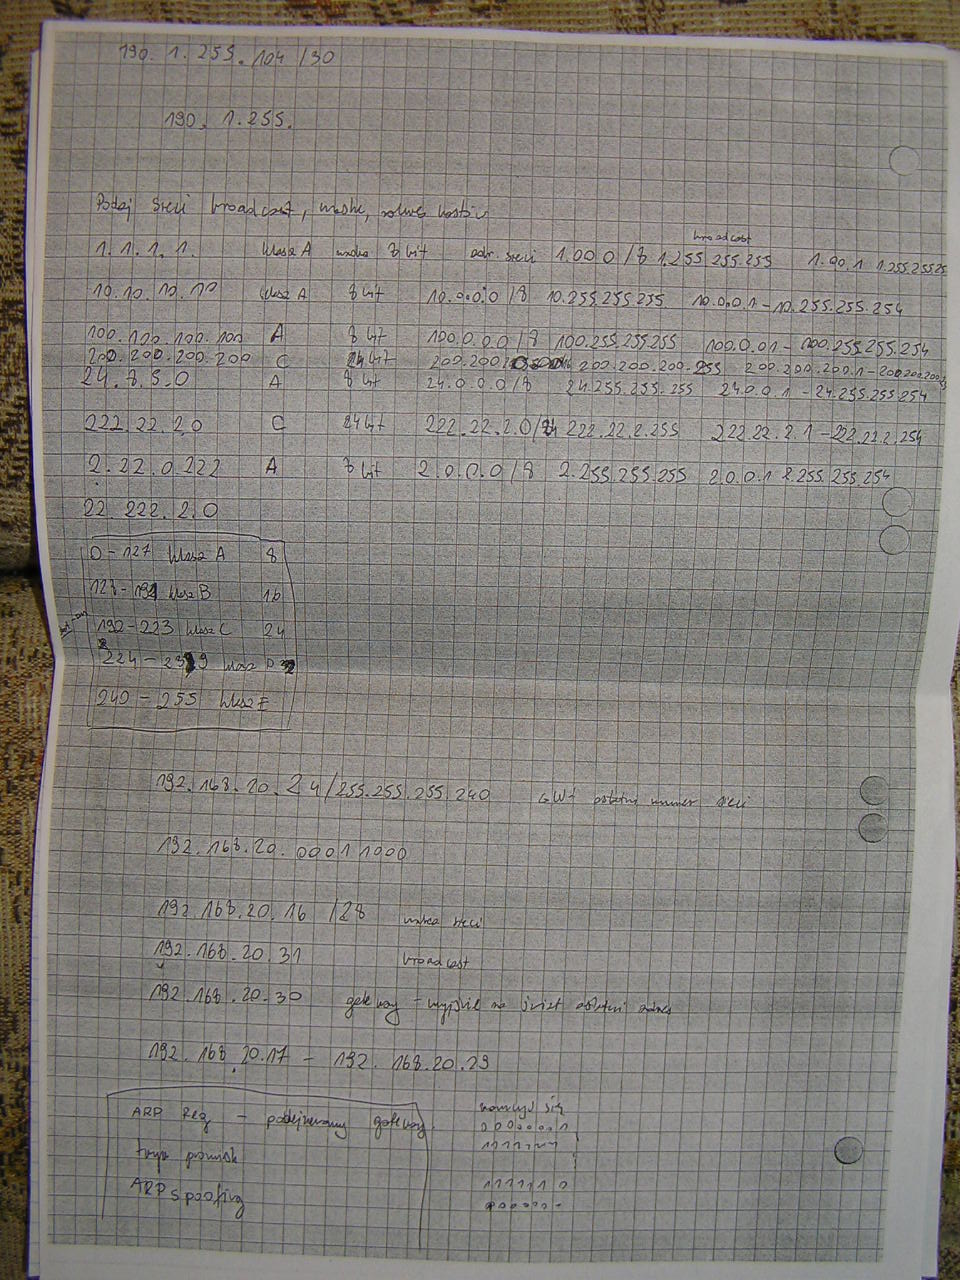 190. 1. 255. 104 /30
190. 1. 255.
Podaj sieci broadcast, maskę, zakres hostów
broadcast
1. 1. 1. 1. klasa A maska 8 bit adr. sieci 1.0.0.0 /8 1.255.255.255 1.0.0.1 1.255.255.25
10.10.10.10 klasa A 8 bit 10.0.0.0 /8 10.255.255.255 10.0.0.1 - 10.255.255.254
100.100.100.100 A 8 bit 100.0.0.0 /8 100.255.255.255 100.0.0.1 - 100.255.255.254
200.200.200.200 C 24 bit 200.200.200.255 200.200.200.1 -
24.8.5.0 A 8 bit 24.0.0.0/8 24.255.255.255 24.0.0.1 - 24.255.255.254
222.22.2.0 C 24 bit 222.22.2.0/24 222.22.2.255 222.22.2.1 - 222.22.2.254
2.22.0.222 A 8 bit 2.0.0.0/8 2.255.255.255 2.0.0.1 2.255.255.254
22.222.2.0
0 - 127 klasa A 8
128 - 191 klasa B 16
192 - 223 klasa C 24
224 - 239 klasa D
240 - 255 klasa E
192.168.20.24/255.255.255.240 GW+ ostatni numer sieci
192.168.20.00011000
192.168.20.16 /28 sieci
192.168.20.31 broadcast
192.168.20.30 gateway - wyjście na świat ostatni adres
192.168.20.17 - 192.168.20.29
ARP Req - podejmowany gateway
tryb promisk
ARP spoofing